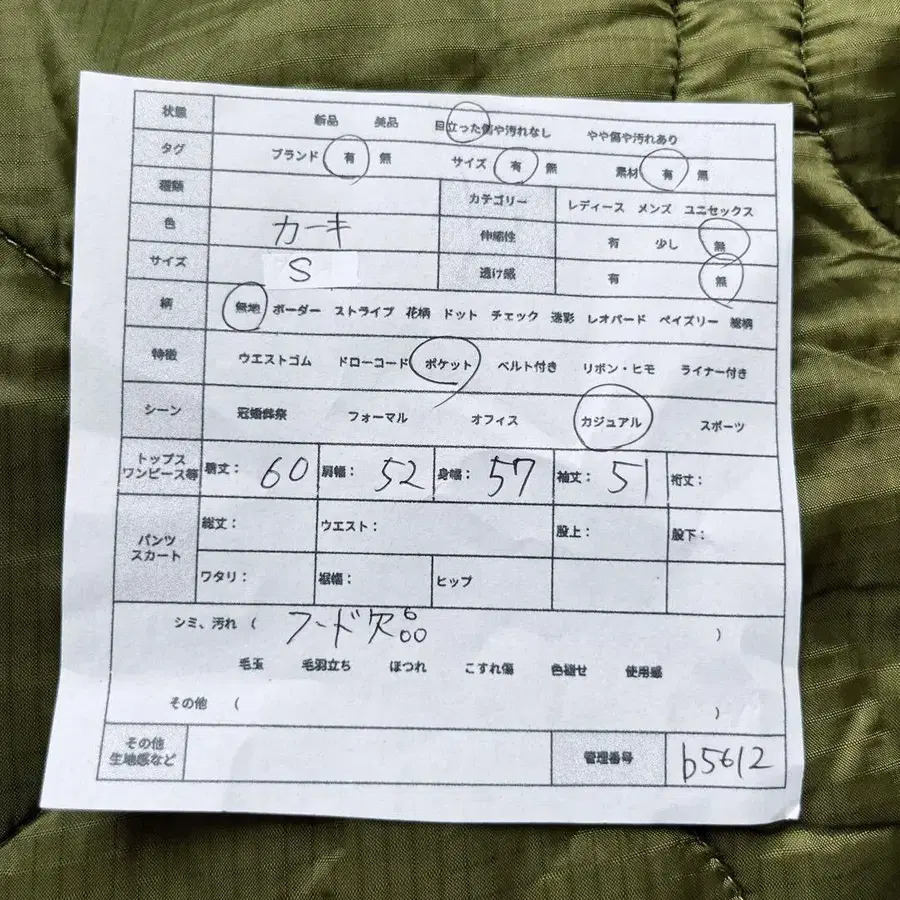 状態 新品 美品 目立った傷や汚れなし やや傷や汚れあり
タグ ブランド 有 無 サイズ 有 無 素材 有 無
種類 カテゴリー レディース メンズ ユニセックス
色 カーキ 伸縮性 有 少し 無
サイズ S 透け感 有 無
柄 無地 ボーダー ストライプ 花柄 ドット チェック 迷彩 レオパード ペイズリー 総柄
特徴 ウエストゴム ドローコード ポケット ベルト付き リボン・ヒモ ライナー付き
シーン 冠婚葬祭 フォーマル オフィス カジュアル スポーツ
トップス
ワンピース等 着丈： 60 肩幅： 52 身幅： 57 袖丈： 51 裄丈：
パンツ
スカート 総丈： ウエスト： 股上： 股下：
ワタリ： 裾幅： ヒップ
シミ、汚れ （ フード欠品 ）
毛玉 毛羽立ち ほつれ こすれ傷 色褪せ 使用感
その他 （ ）
その他
生地感など 管理番号 b5612